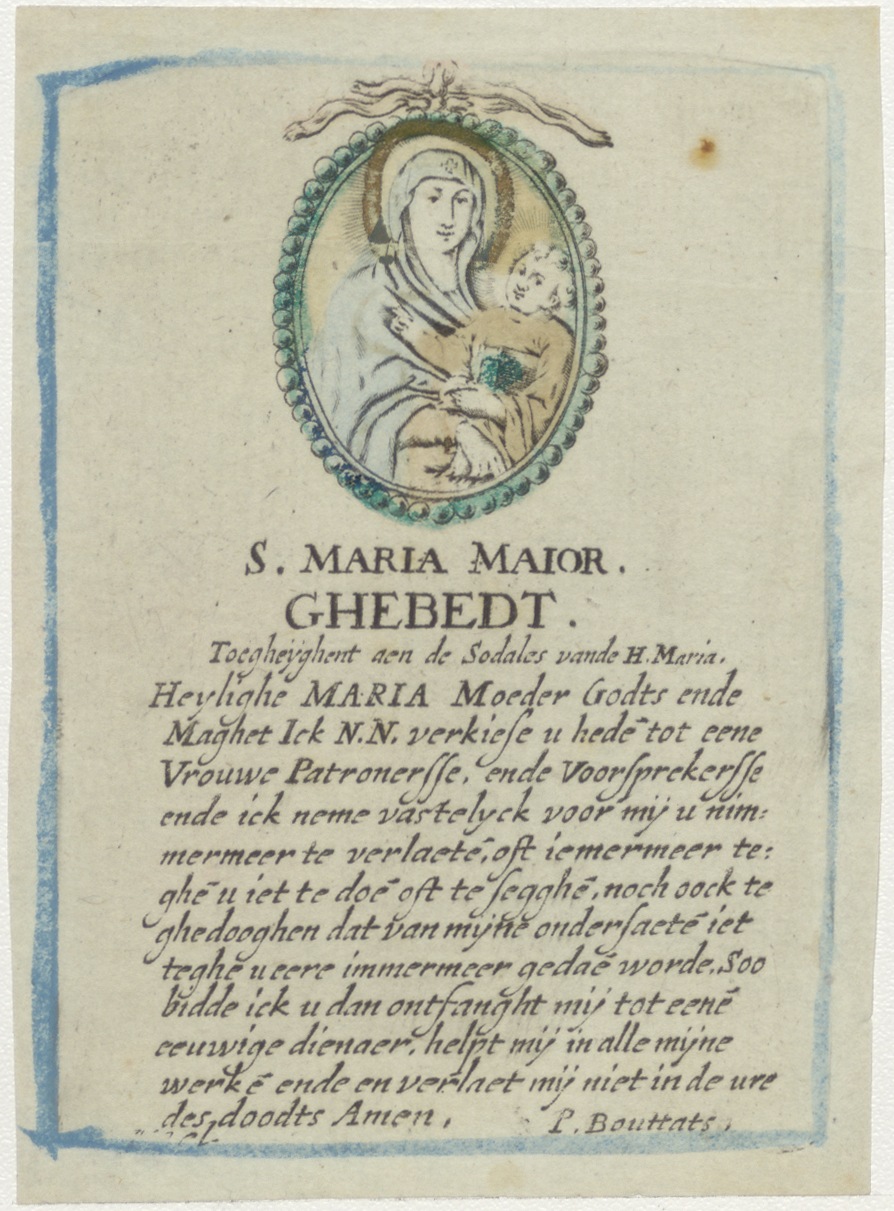 S. MARIA MAIOR.
GHEBEDT.
Toegheÿghent aen de Sodales vande H. Maria.
Heylighe MARIA Moeder Godts ende
Maghet Ick N.N. verkieſe u hedē tot eene
Vrouwe Patronerſſe, ende Voorſprekerſſe
ende ick neme vastelyck voor mij u nim:
mermeer te verlaetē, oft iemermeer te:
ghē u iet te doē oft te ſegghē, noch oock te
ghedooghen dat van mijne onderſaetē iet
teghē u eere immermeer gedaē worde. Soo
bidde ick u dan ontfanght mij tot eenē
eeuwige dienaer, helpt mij in alle mijne
werkē ende en verlaet mij niet in de ure
des doodts Amen,
P. Bouttats,